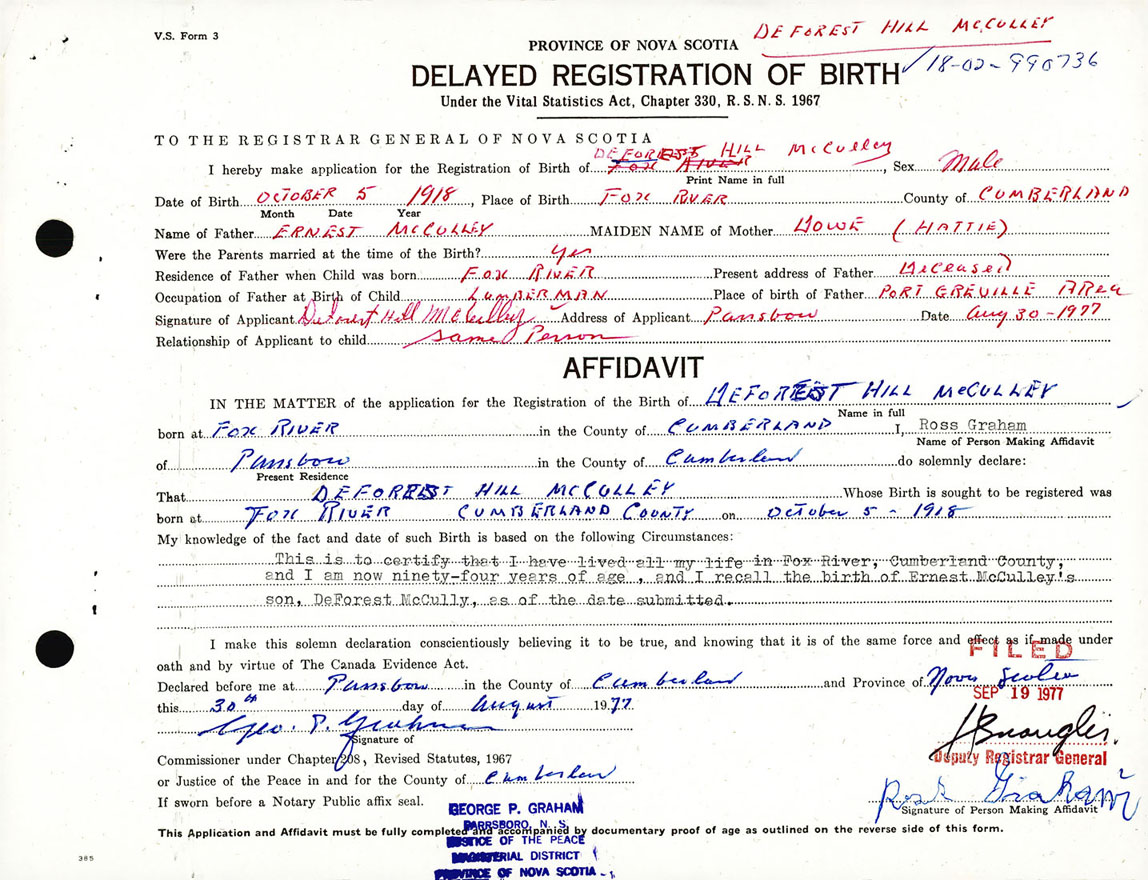 V.S. Form 3
DEFOREST HILL McCULLEY
PROVINCE OF NOVA SCOTIA
DELAYED REGISTRATION OF BIRTH
18-02-990736
Under the Vital Statistics Act, Chapter 330, R.S.N.S. 1967
TO THE REGISTRAR GENERAL OF NOVA SCOTIA
DEFOREST HILL McCulley
I hereby make application for the Registration of Birth of Fox River, Sex Male
Print Name in full
Date of Birth OCTOBER 5 1918, Place of Birth FOX RIVER County of CUMBERLAND
Month Date Year
Name of Father ERNEST McCULLEY MAIDEN NAME of Mother HOWE (HATTIE)
Were the Parents married at the time of the Birth? Yes
Residence of Father when Child was born FOX RIVER Present address of Father Deceased
Occupation of Father at Birth of Child LUMBERMAN Place of birth of Father PORT GREVILLE AREA
Signature of Applicant DeForest Hill McCulley Address of Applicant Parrsboro Date Aug 30-1977
Relationship of Applicant to child same Person
AFFIDAVIT
IN THE MATTER of the application for the Registration of the Birth of DEFOREST HILL McCULLEY
Name in full
born at FOX RIVER in the County of CUMBERLAND I, Ross Graham
Name of Person Making Affidavit
of Parrsboro in the County of Cumberland do solemnly declare:
Present Residence
That DEFOREST HILL McCULLEY Whose Birth is sought to be registered was
born at FOX RIVER CUMBERLAND COUNTY on October 5 - 1918
My knowledge of the fact and date of such Birth is based on the following Circumstances:
This is to certify that I have lived all my life in Fox River, Cumberland County,
and I am now ninety-four years of age , and I recall the birth of Ernest McCulley's
son, DeForest McCully, as of the date submitted.
I make this solemn declaration conscientiously believing it to be true, and knowing that it is of the same force and effect as if made under
FILED
oath and by virtue of The Canada Evidence Act.
Declared before me at Parrsboro in the County of Cumberland and Province of Nova Scotia
SEP 19 1977
this 30th day of August 1977
Geo. P. Graham
Signature of
Commissioner under Chapter 208, Revised Statutes, 1967
Deputy Registrar General
or Justice of the Peace in and for the County of Cumberland
Ross Graham
If sworn before a Notary Public affix seal.
Signature of Person Making Affidavit
GEORGE P. GRAHAM
PARRSBORO, N. S.
This Application and Affidavit must be fully completed and accompanied by documentary proof of age as outlined on the reverse side of this form.
JUSTICE OF THE PEACE
MAGISTERIAL DISTRICT
PROVINCE OF NOVA SCOTIA
385